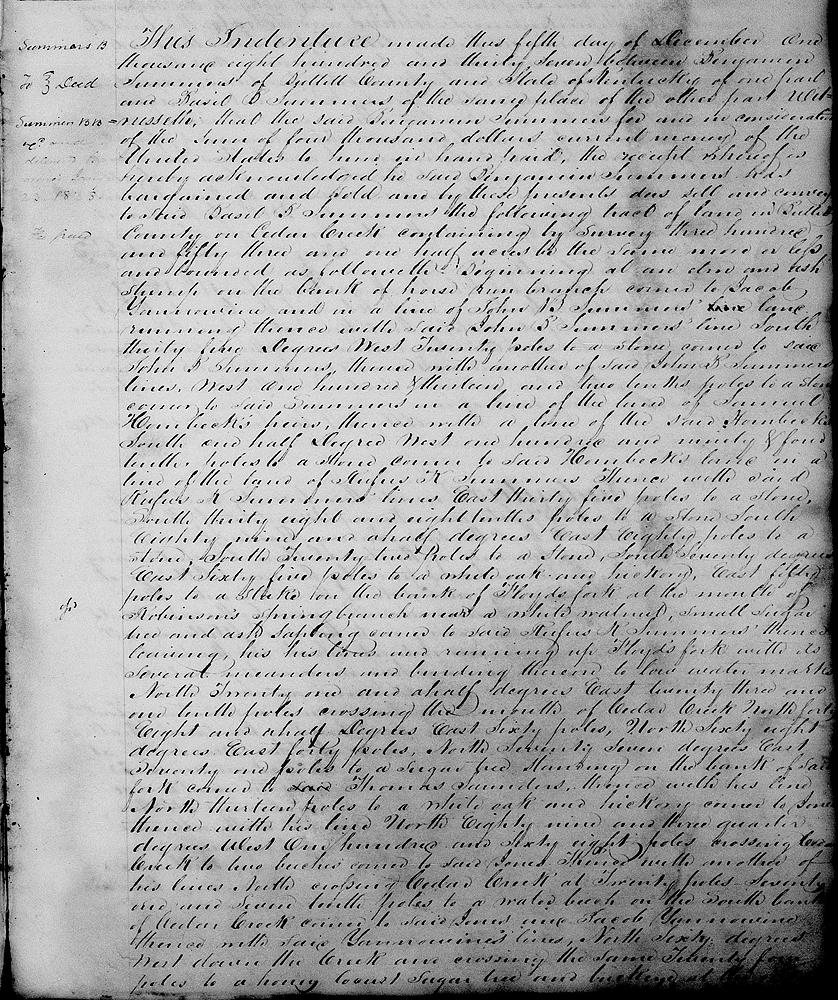 Summers B
To } Deed
Summers B B
This Indenture made this fifth day of December One
thousand eight hundred and thirty seven between Benjamin
Summers of Bullitt County and State of Kentucky of one part
and Basil B Summers of the same place of the other part Wit=
=nesseth, that the said Benjamin Summers for and in consideration
of the Sum of four thousand dollars current money of the
United States to him in hand paid, the receipt whereof is
hereby acknowledged he said Benjamin Summers has
bargained and sold and by these presents does sell and convey
to said Basil B Summers the following tract of land in Bullitt
County on Cedar Creek containing by Survey three hundred
and fifty three and one half acres be the same more or less
and bounded as followeth. Beginning at an elm and ash
Stump on the bank of horse run branch corner to Jacob
Yannowine and in a line of John B Summers' land
running thence with said John B Summers' line South
thirty five Degrees West Twenty poles to a Stone, corner to said
John B Summers, thence with another of said John B Summers
lines, West one hundred & thirteen and two tenths poles to a Stone
corner to said Summers in a line of the land of Samuel
Hornbeck's heirs, thence with a line of the said Hornbecks
South one half Degree West one hundred and ninety & four
tenths poles to a Stone corner to said Hornbecks line in a
line of the land of Rufus K Summers Thence with said
Rufus K Summers' lines East thirty five poles to a Stone,
South thirty eight and eight tenths poles to a Stone South
Eighty nine and a half degrees East Eighty poles to a
Stone, South Twenty two Poles to a Stone, South Seventy degrees
East Sixty five poles to a white oak and hickory, East fifteen
poles to a Stake on the bank of Floyds fork at the mouth of
Robinson's Spring branch near a white walnut, small Sugar
tree and ash Sapling corner to said Rufus K Summers' thence
leaving, his his lines and running up Floyds fork with its
Several meanders and binding thereon to low water mark
North Twenty one and a half degrees East twenty three and
one tenth poles crossing the mouth of Cedar Creek North forty
Eight and a half Degrees East Sixty poles, North Sixty eight
degrees East forty poles, North Seventy Seven degrees East
Seventy one poles to a Sugar tree Standing on the bank of said
fork corner to Thomas Saunders, thence with his line
North thirteen poles to a white oak and hickory corner to Jones
thence with his line North Eighty nine and three quarter
degrees West One hundred and Sixty eight poles crossing Cedar
Creek to two buches corner to said Jones Thence with another of
his lines North crossing Cedar Creek at Twenty poles Seventy
one and Seven tenth poles to a water beech on the South bank
of Cedar Creek corner to said Jones and Jacob Yannowine
thence with said Yannowine's lines, North Sixty degrees
West down the Creek and crossing the same Twenty four
poles to a honey locust Sugar tree and buckeye at the